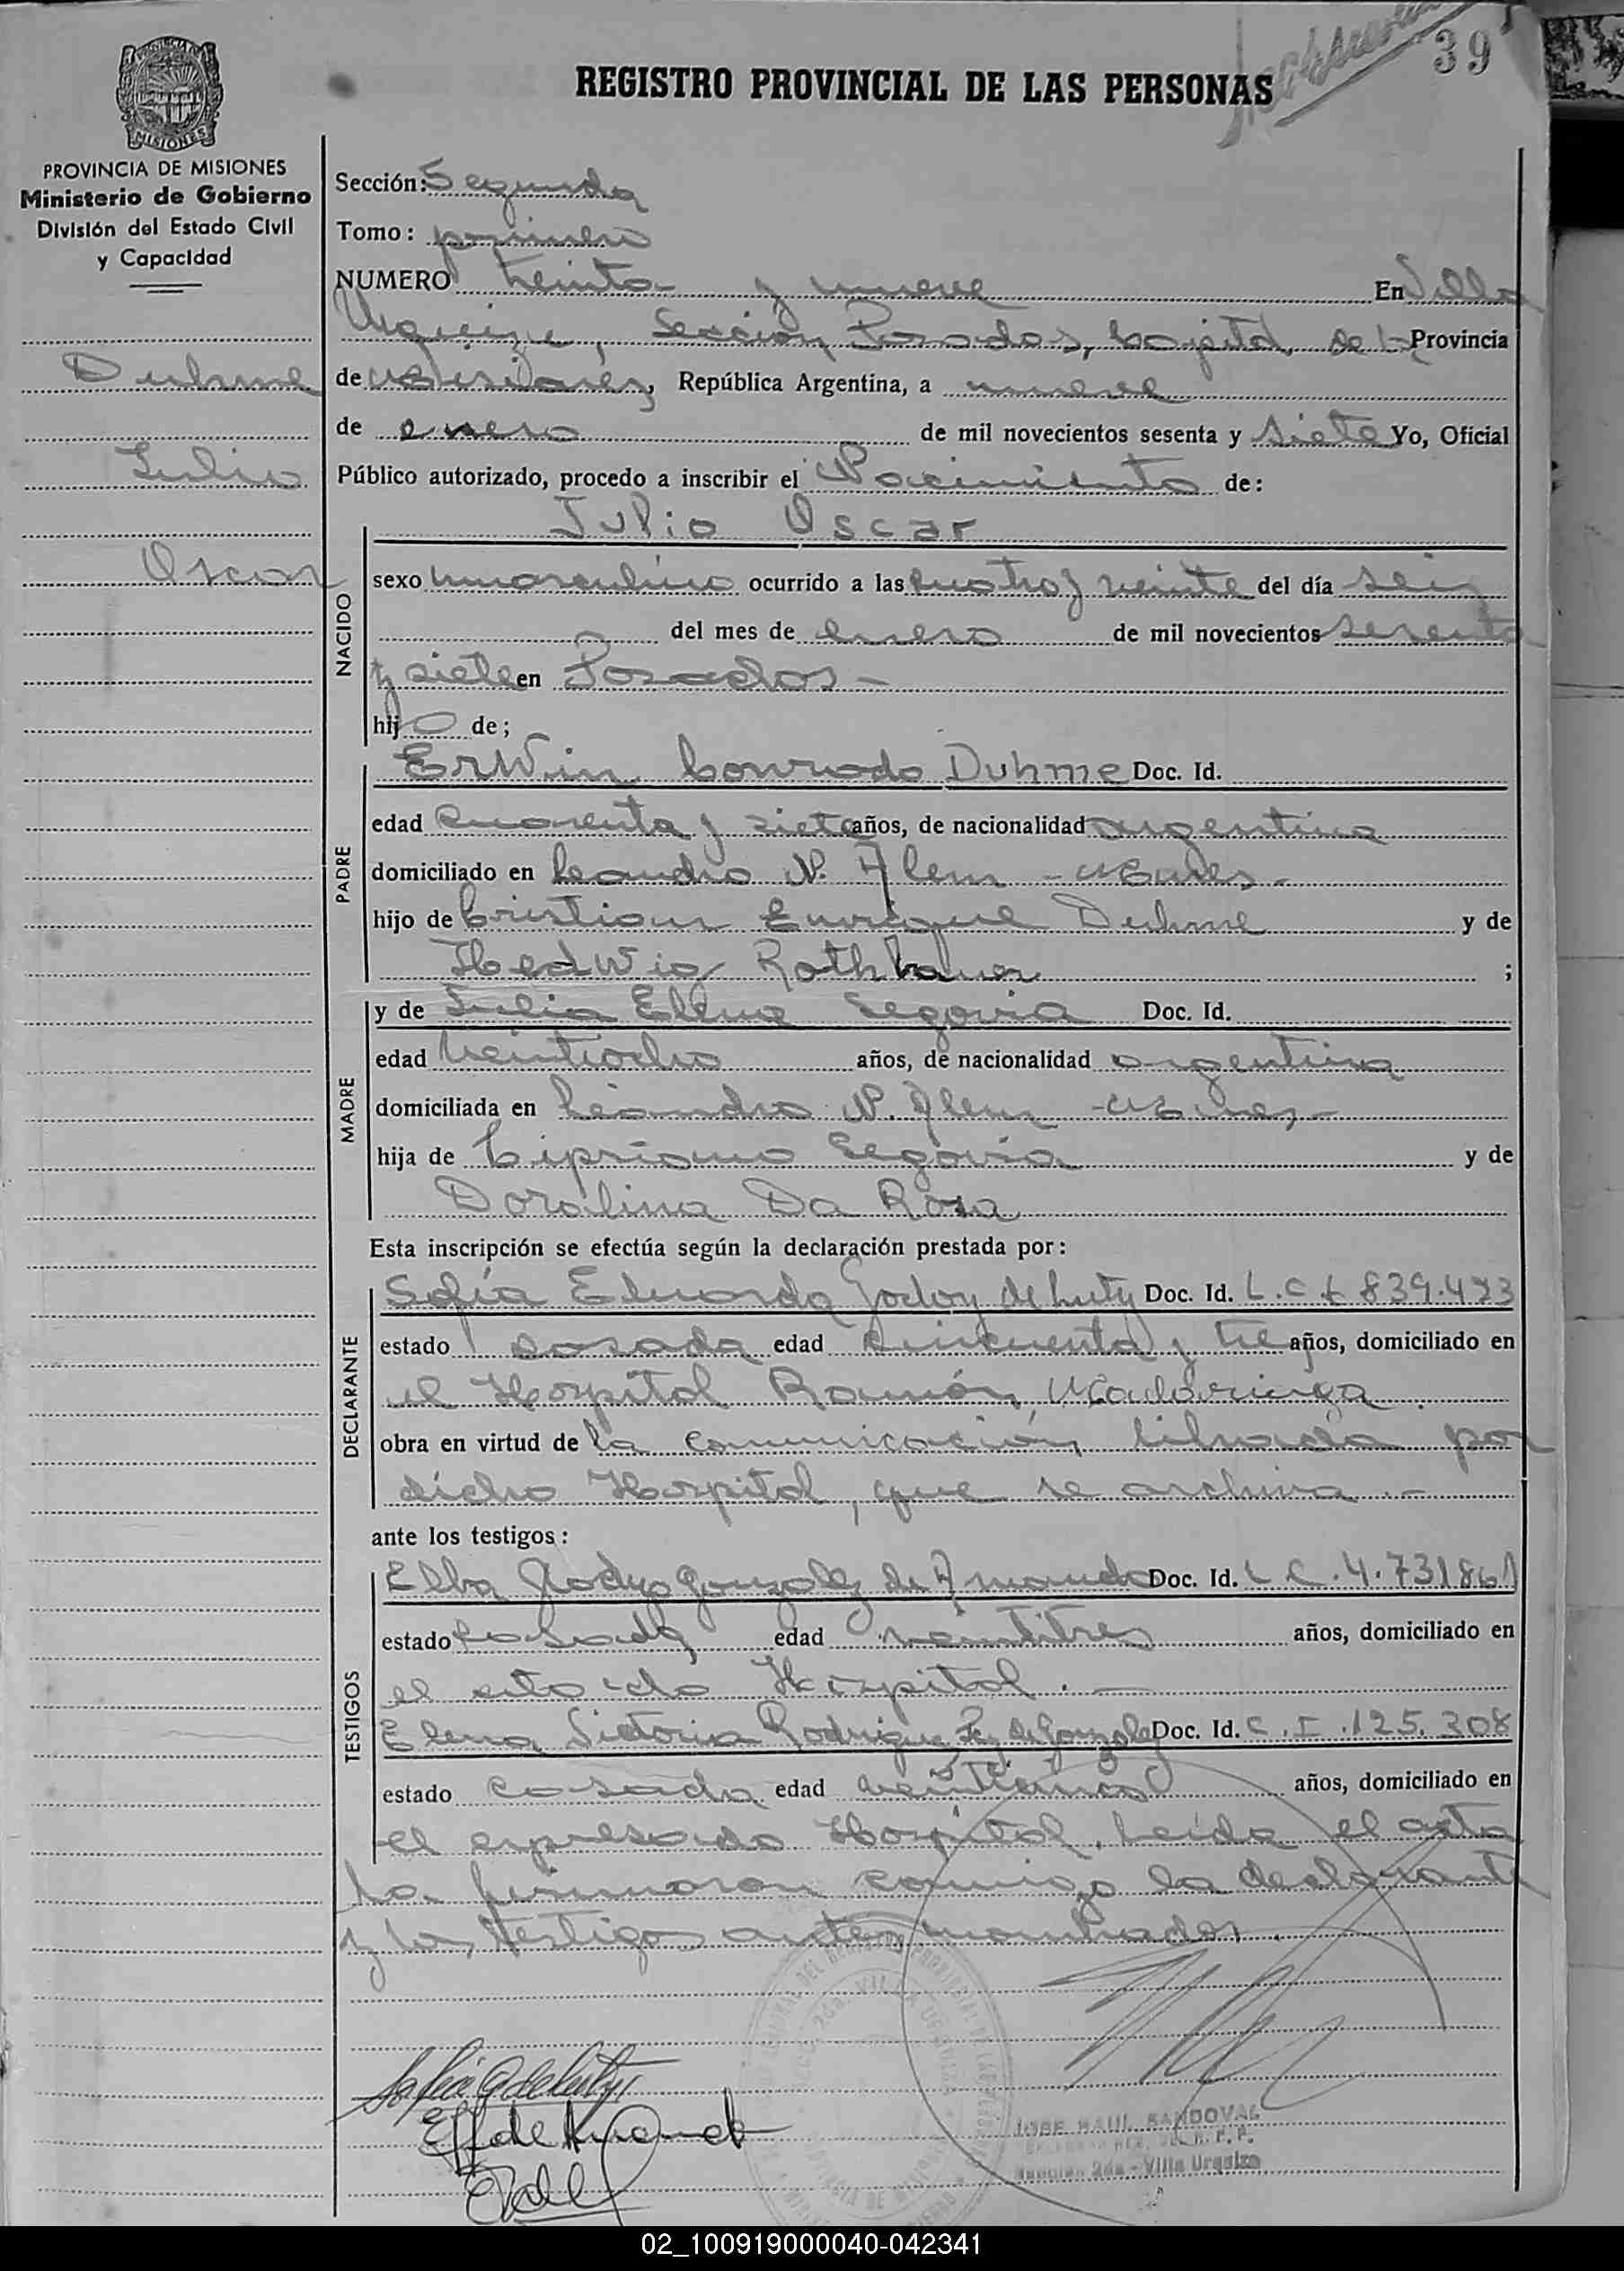 39
REGISTRO PROVINCIAL DE LAS PERSONAS
MISIONES
PROVINCIA DE MISIONES
Ministerio de Gobierno
División del Estado Civil
y Capacidad
Duhme
Julio
Oscar
Sección: Segunda
Tomo: primero
NUMERO treinta y nueve En Villa
Urquiza, Sección Posadas, Capital de la Provincia
de Misiones, República Argentina, a nueve
de enero de mil novecientos sesenta y siete Yo, Oficial
Público autorizado, procedo a inscribir el Nacimiento de:
Julio Oscar
NACIDO
sexo masculino ocurrido a las cuatro y veinte del día seis
del mes de enero de mil novecientos sesenta
y siete en Posadas -
hijo de;
PADRE
Erwin Conrado Duhme Doc. Id.
edad cuarenta y siete años, de nacionalidad argentina
domiciliado en Leandro N. Alem - Mnes -
hijo de Cristian Enrique Duhme y de
Hedwig Rothbauer ;
MADRE
y de Julia Elena Segovia Doc. Id.
edad veintiocho años, de nacionalidad argentina
domiciliada en Leandro N. Alem - Mnes -
hija de Cipriano Segovia y de
Doralina Da Rosa
Esta inscripción se efectúa según la declaración prestada por:
DECLARANTE
Sofía Eduarda Godoy de Doc. Id. L.C. 839.423
estado casada edad cincuenta y tres años, domiciliado en
el Hospital Ramón Madariaga
obra en virtud de la comunicación librada por
dicho Hospital, que se archiva. -
ante los testigos:
TESTIGOS
Elba Gonzalez de Doc. Id. L C. 4.731861
estado casada edad veintitres años, domiciliado en
el citado Hospital. -
Elena Victoria Rodriguez de Gonzalez Doc. Id. C.I. 125.308
estado casada edad veinticinco años, domiciliado en
el expresado Hospital. Leída el acta
la firmaron conmigo la declarante
y los testigos antes nombrados.
JOSE RAUL SANDOVAL
Sección 2da - Villa Urquiza
02_100919000040-042341